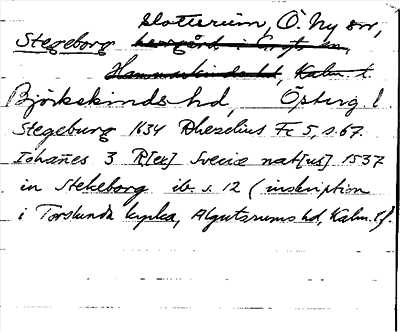 slottsruin, Ö. Ny sn,
Stegeborg herrgård i
Hammarkinds hd, Kalm. l.
Björkekinds hd, Österg. l
Stegeburg 1634 Rhezelius Fc 5, s. 67.
Iohañes 3 R[ex] Sveciæ nat[us] 1537
in Stekeborg ib. s. 12 (inskription
i Torslunda kyrka, Algutsrums hd, Kalm. l).